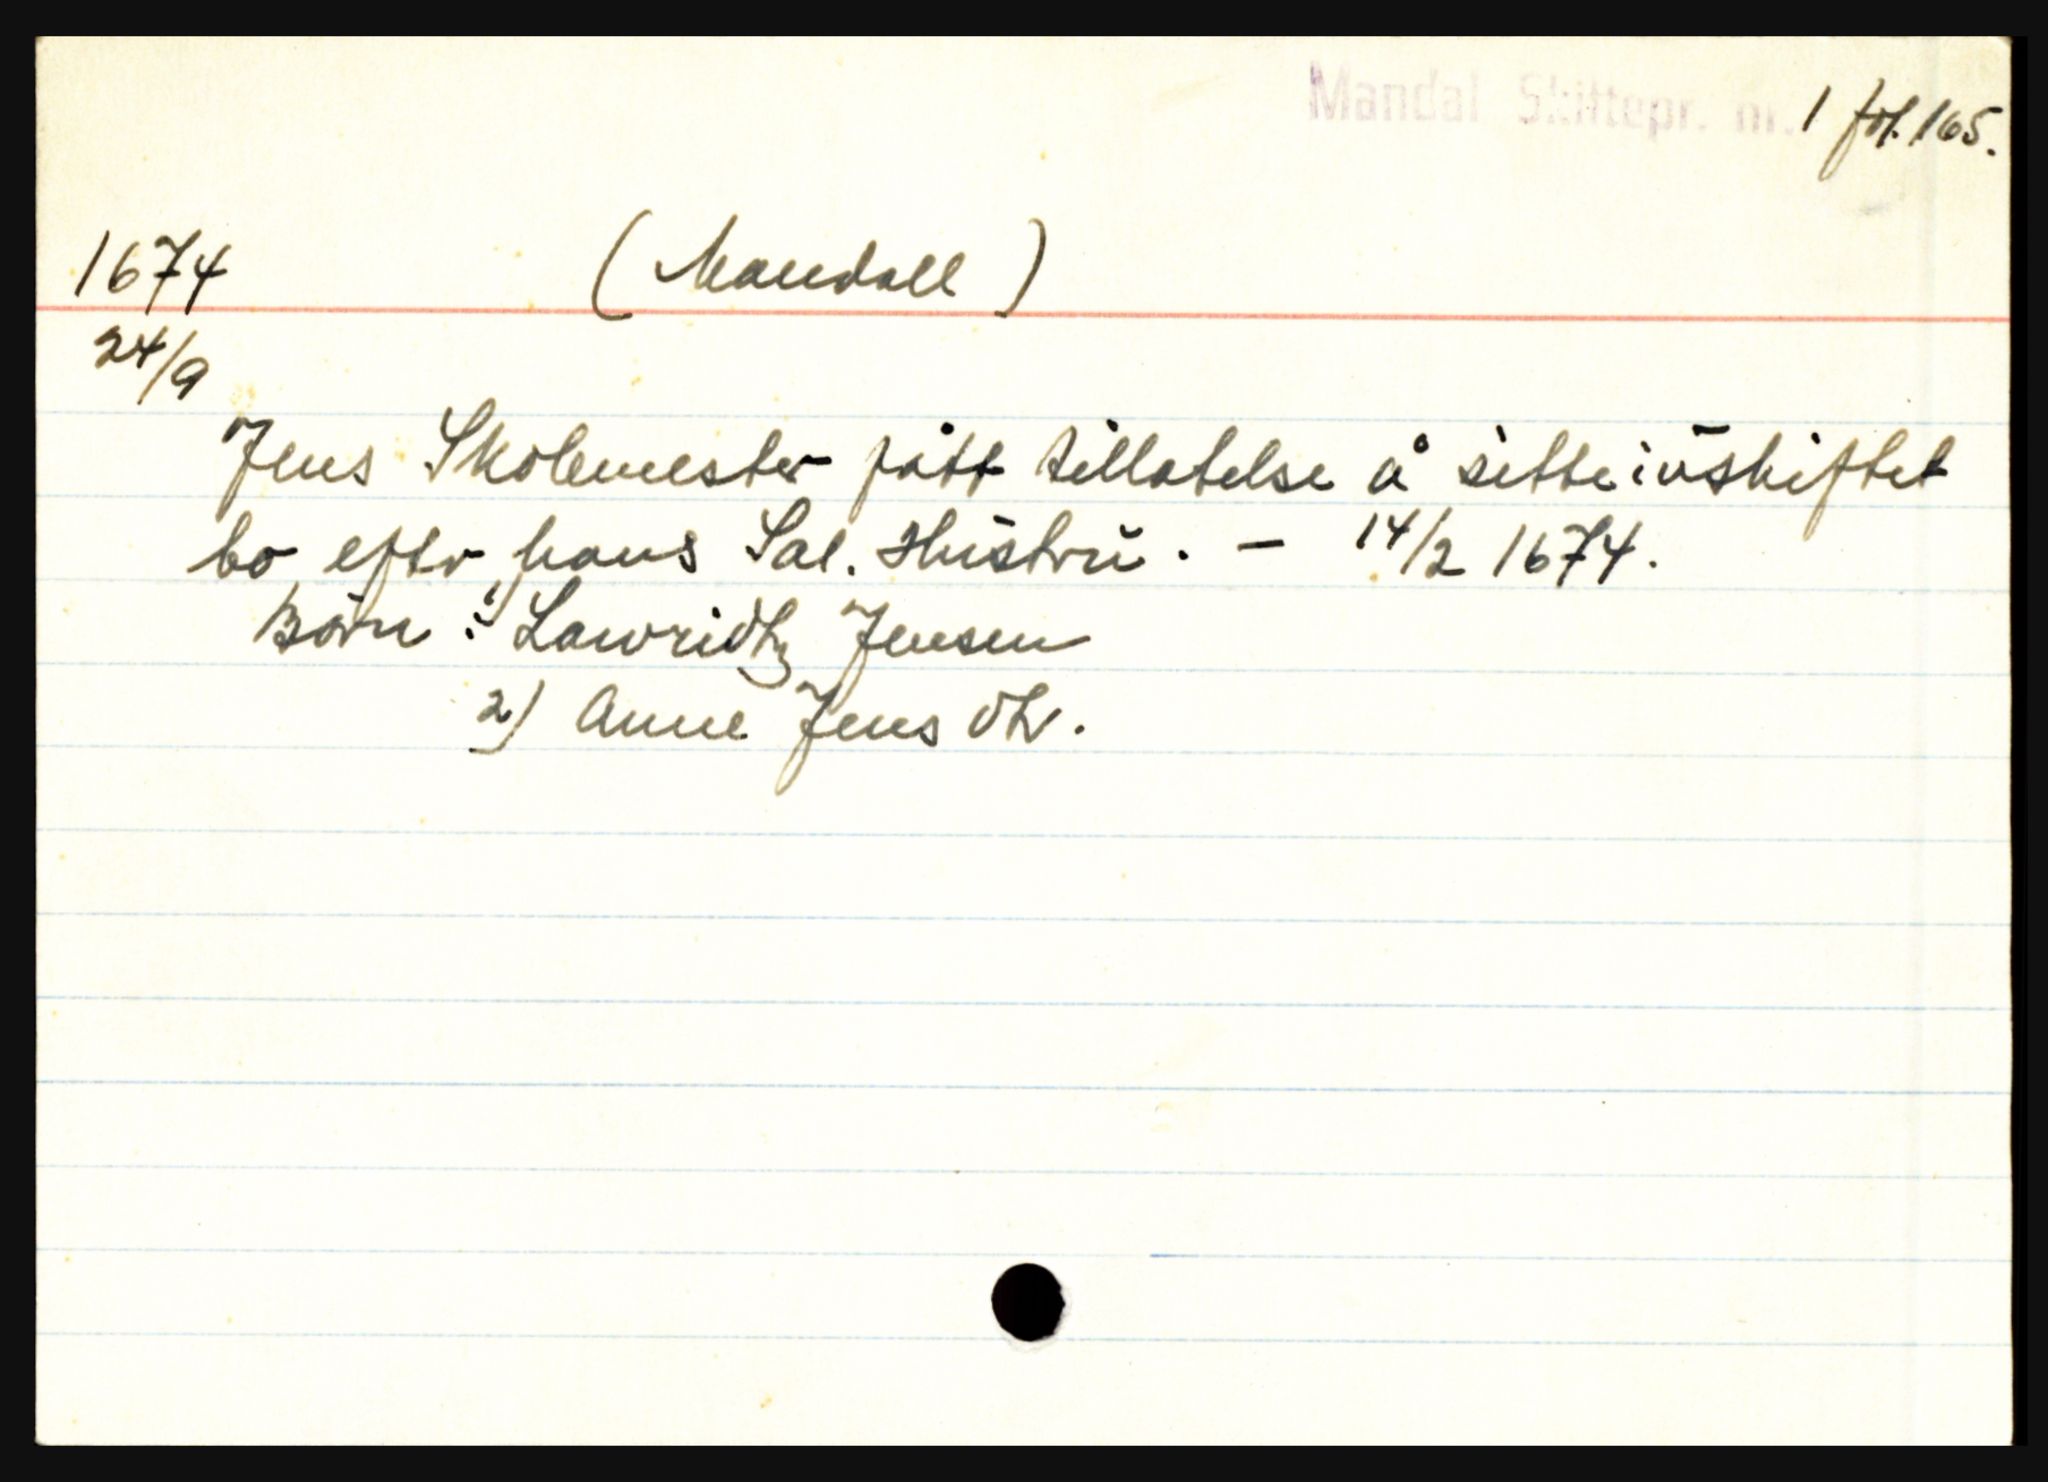 Mandal Skiftepr. nr. 1 fol. 165.
1674 (Mandall)
24/9
Jens Skolemester fått tillatelse å sitte i uskiftet
bo efter hans Sal. Hustru. - 14/2 1674.
Børn: 1) Lawridtz Jensen
2) Anne Jens dtr.